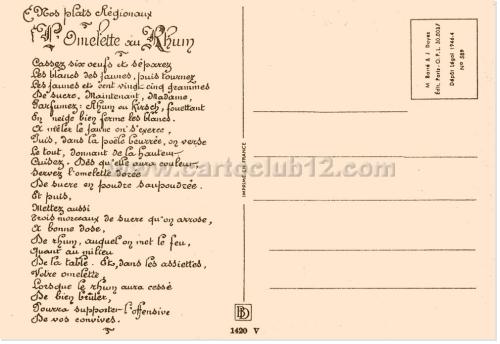 Nos plats Régionaux
L'Omelette au Rhum
Cassez six oeufs et séparez
Les blancs des jaunes, puis tournez
Les jaunes et cent vingt cinq grammes
De sucre. Maintenant, Madame,
Parfumez: Rhum ou Kirsch, fouettant
En neige bien ferme les blancs.
A mêler le jaune on s'exerce,
Puis, dans la poêle beurrée, on verse
Le tout, donnant de la hauteur
Guidez. Dès qu'elle aura couleur,
Servez l'omelette dorée
De sucre en poudre saupoudrée.
Et puis,
Mettez aussi
Trois morceaux de sucre qu'on arrose,
A bonne dose,
De rhum, auquel on met le feu,
Quant au milieu
De la table. Et, dans les assiettes,
Votre omelette,
Lorsque le rhum aura cessé
De bien brûler,
Pourra supporter l'offensive
De vos convives.
IMPRIMÉ EN FRANCE
M. Barré & J. Dayez
Édit. Paris - O.P.L. 30.0037
Dépôt Légal 1946-4
N° 589
www.cartoclub12.com
BD
1420 V